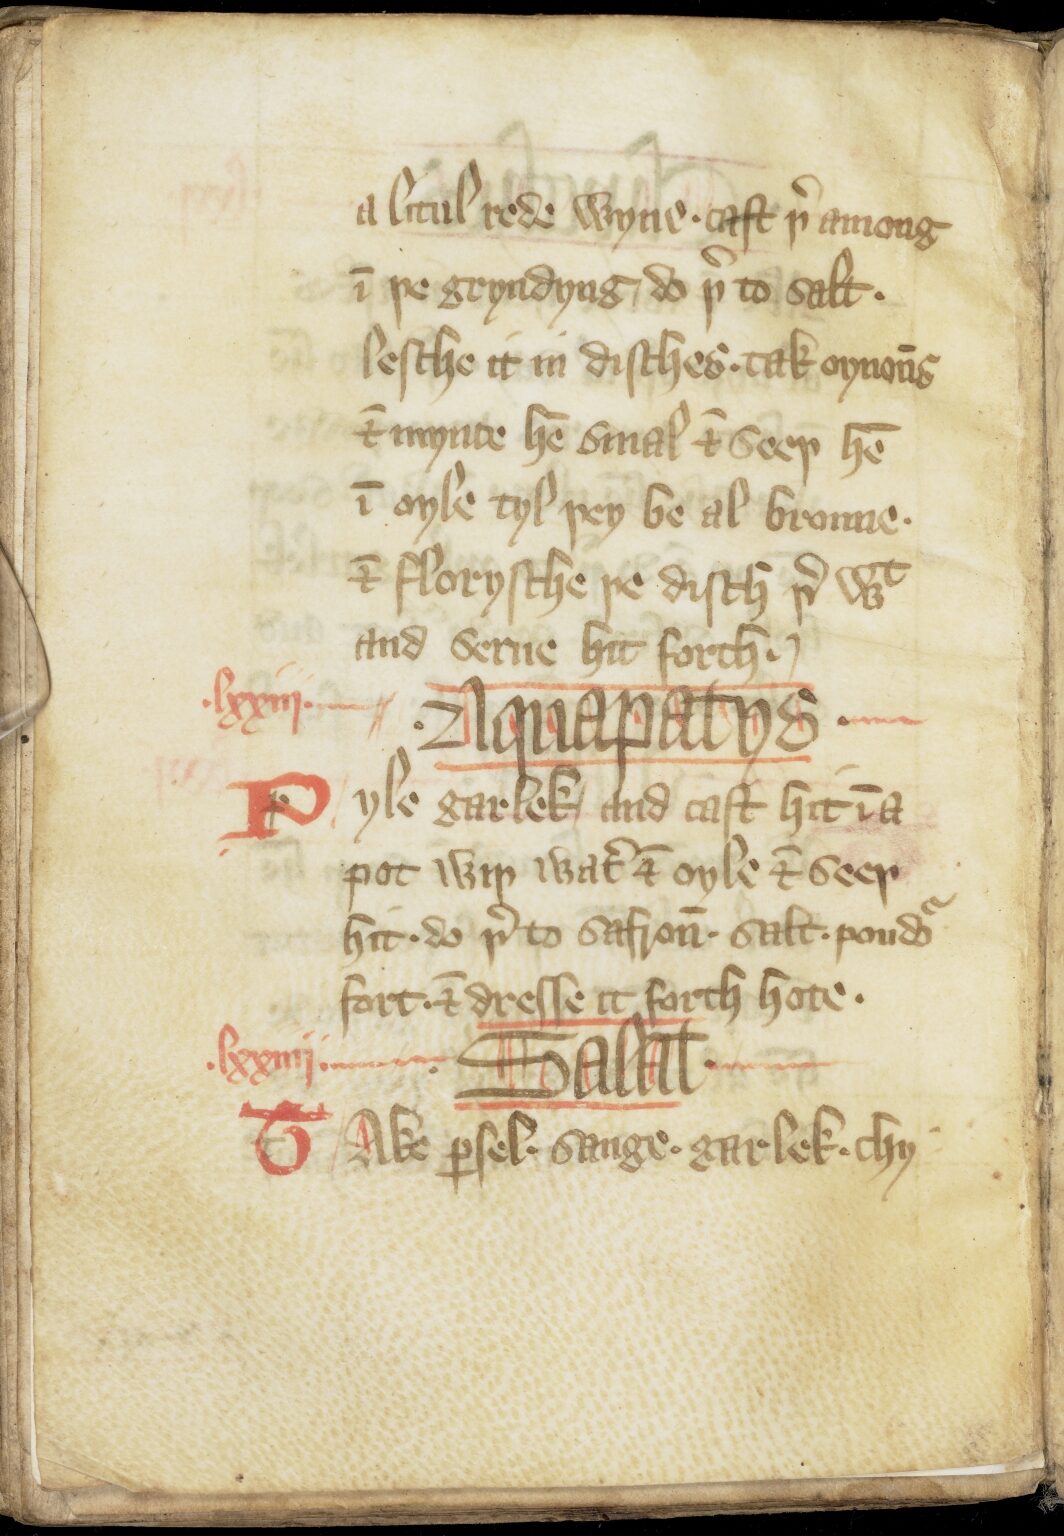 a litul rede wyne · cast þ̉ among
ī þe gryndyng / do þ̉ to salt ·
lesche it in disches · tak oynoūs
⁊ mynce hē smal ⁊ seeþ hē
ī oyle tyl þey be al broune ·
⁊ florysche þe disch þ̉ wᵗ
and serue hit forth ·
· lxxiij · · Aquapatys ·
Pyle garlek / and cast hit ī a
pot wiþ wat̉ ⁊ oyle ⁊ seeþ
hit · do þ̉ to safroū · salt · poudͦ
fort · ⁊ dresse it forth hote ·
· lxxiiij · · Salat ·
TAke ꝑsel · sauge · garlek · chy